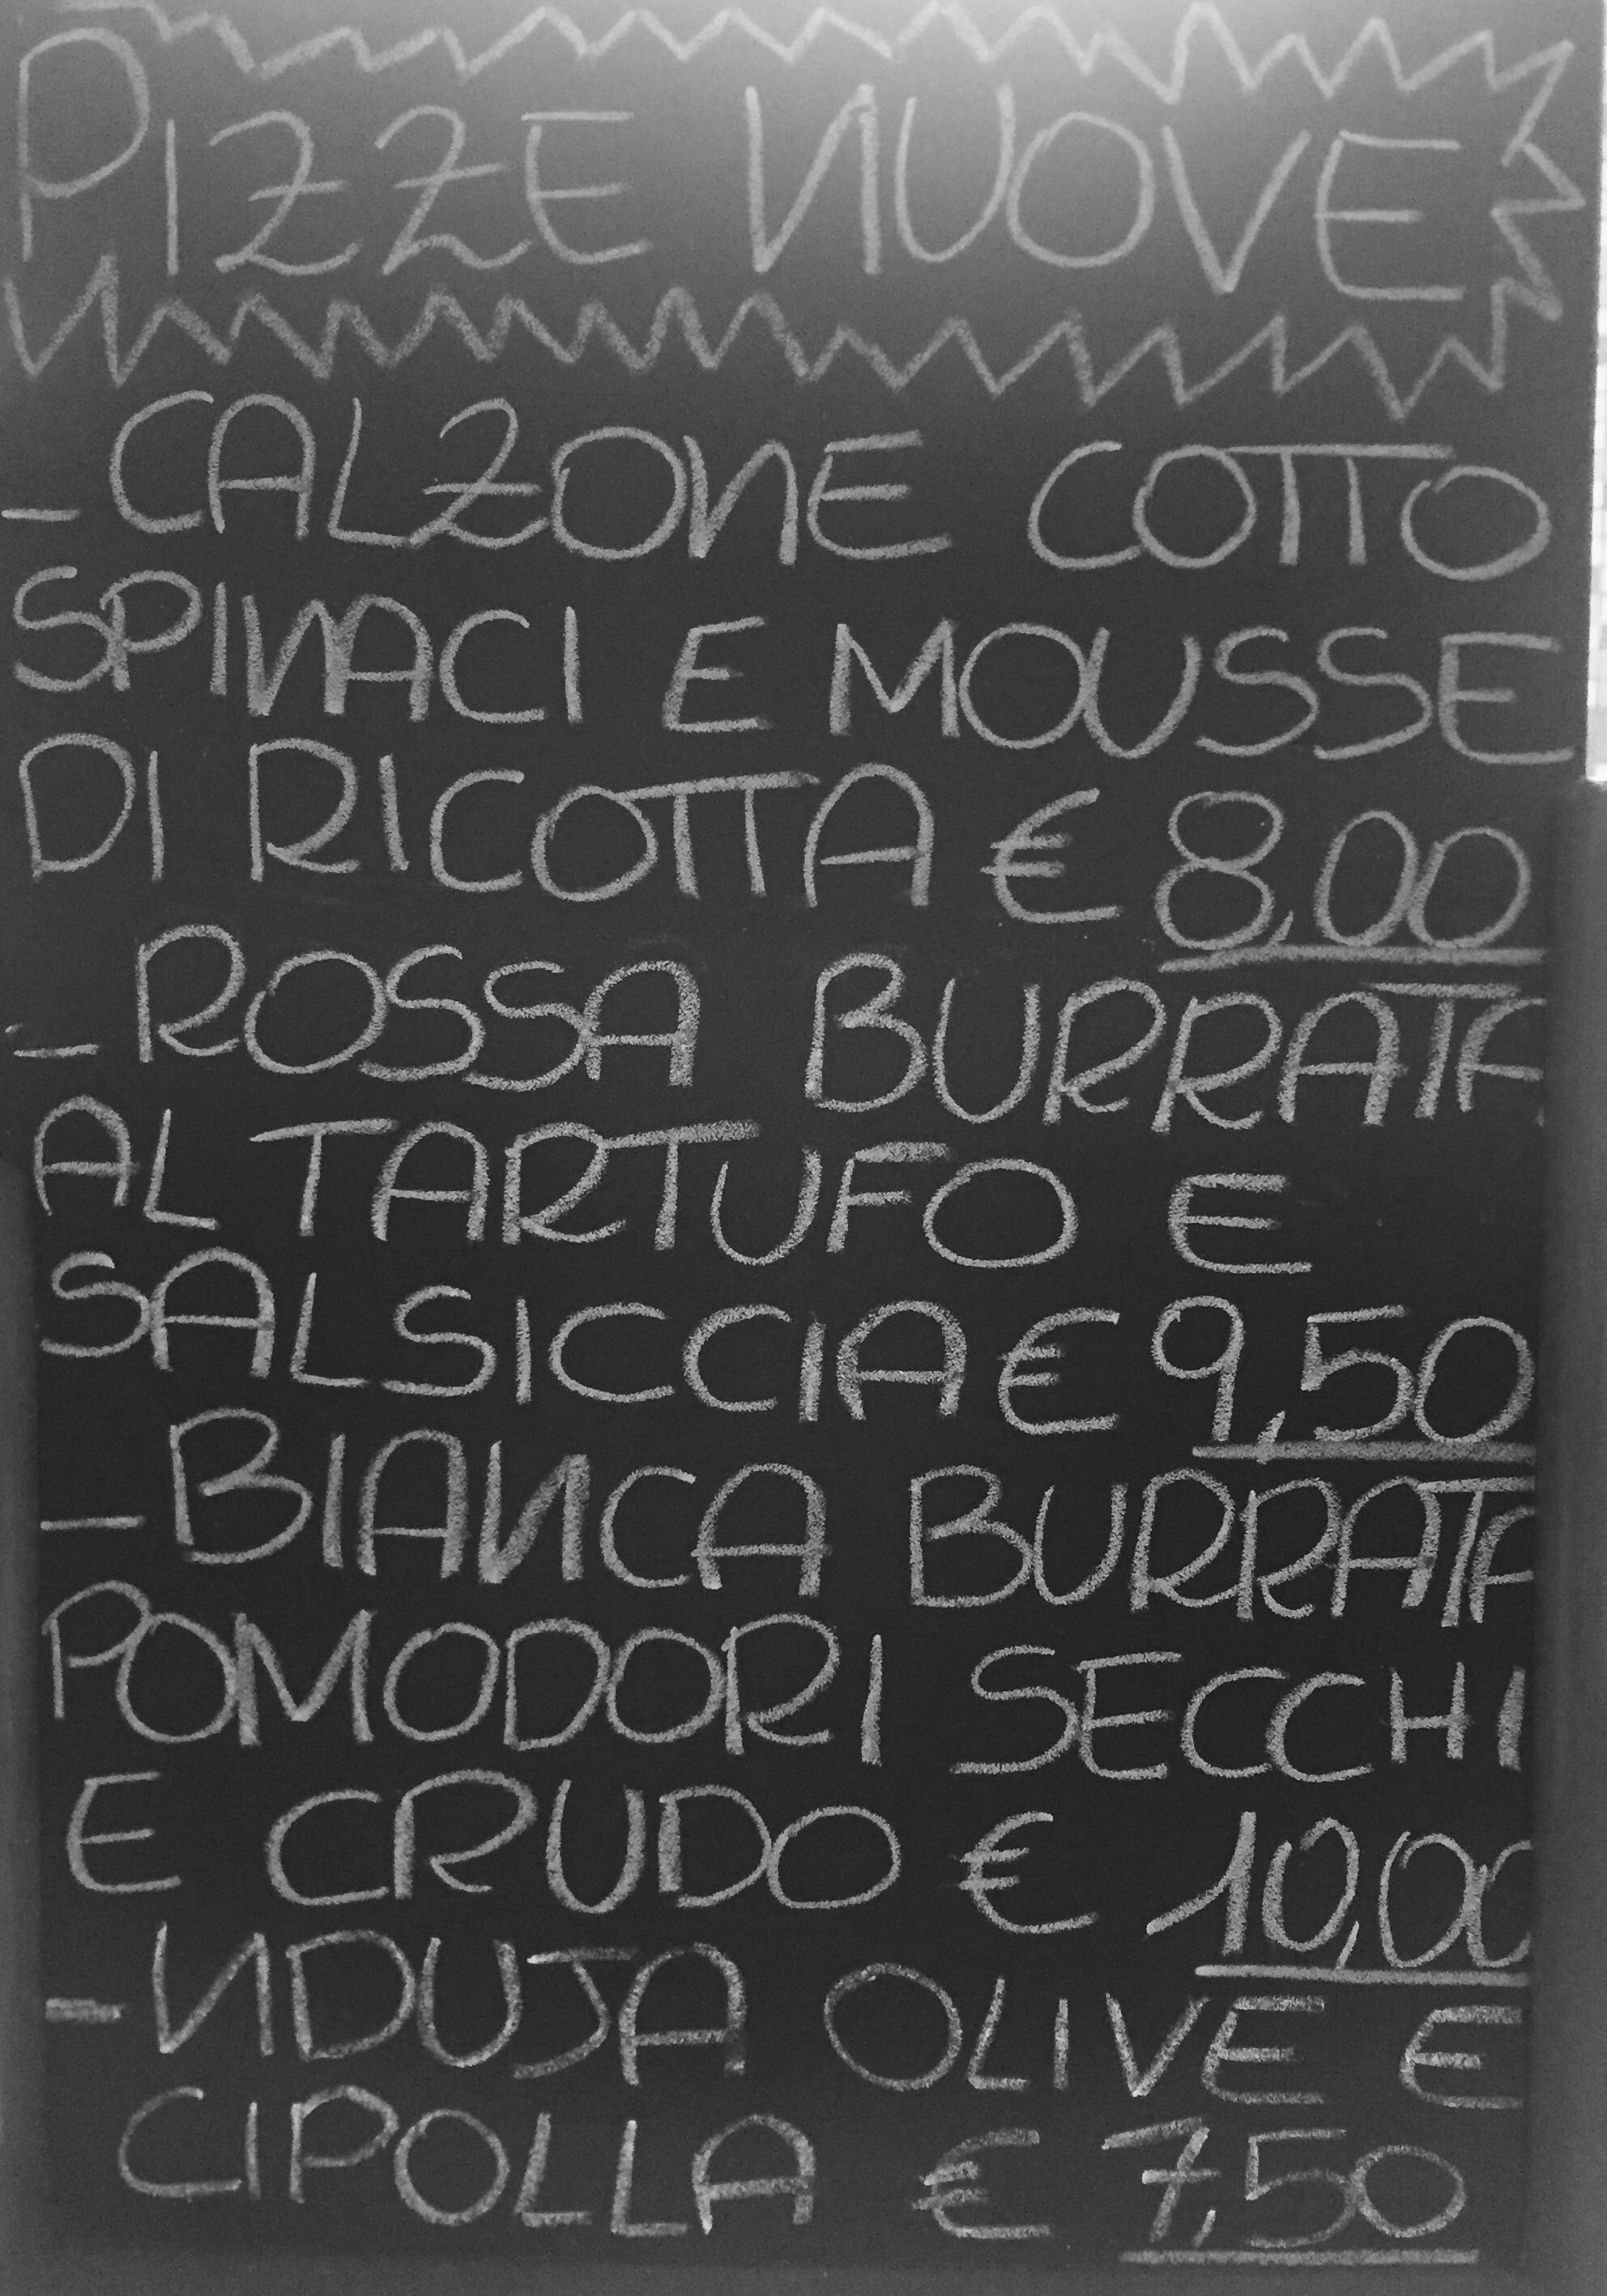 PIZZE NUOVE
- CALZONE COTTO
SPINACI E MOUSSE
DI RICOTTA € 8,00
- ROSSA BURRATA
AL TARTUFO E
SALSICCIA € 9,50
- BIANCA BURRATA
POMODORI SECCHI
E CRUDO € 10,00
- NDUJA OLIVE E
CIPOLLA € 7,50